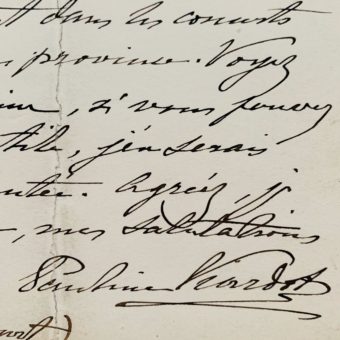 dans les concerts
province. Voyez
, si vous pouvez
, j'en serais
. Agréez, j
, mes salutations
Pauline Viardot